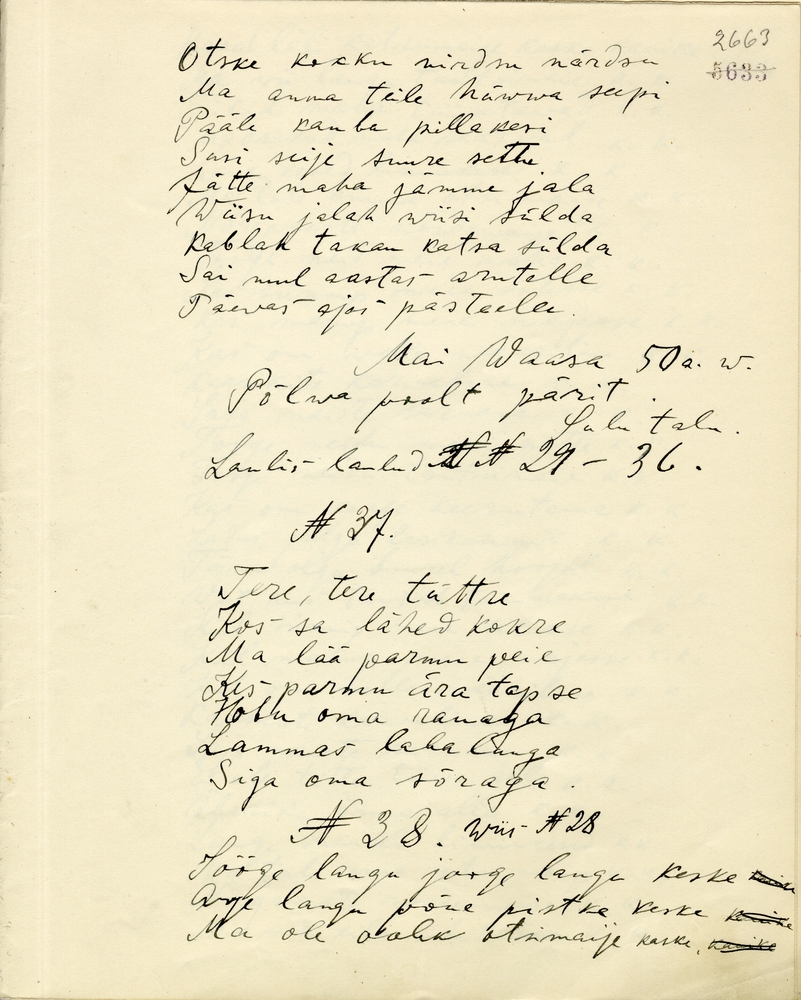 2663
5633
Otske kokku nirdsu närdsu
Ma anna teile hüwwa seepi
Pääle kauba pillakesi
Susi seije suure sethe
Jätte maha jämme jala
Wiisu jalah wiisi sülda
Kablah takan katsa sülda
Sai mul aastas arutelle
Päewas ajos pästeelle.
Mai Waasa 50 a. w.
Põlwa poolt pärit.
Lulu talu.
Laulis laulud N N 29 – 36.
N 37.
Tere, tere tüttre
Kos sa lähed kokre
Ma lää parmu peie
Kes parmu ära tapse
Hobu oma rauaga
Lammas laba luuga
Siga oma sõraga.
N 38. Wiis N 28
Sööge langu jooge langu keske
Arge langu põue pistke keske
Ma ole oolik otsmaije kaske,